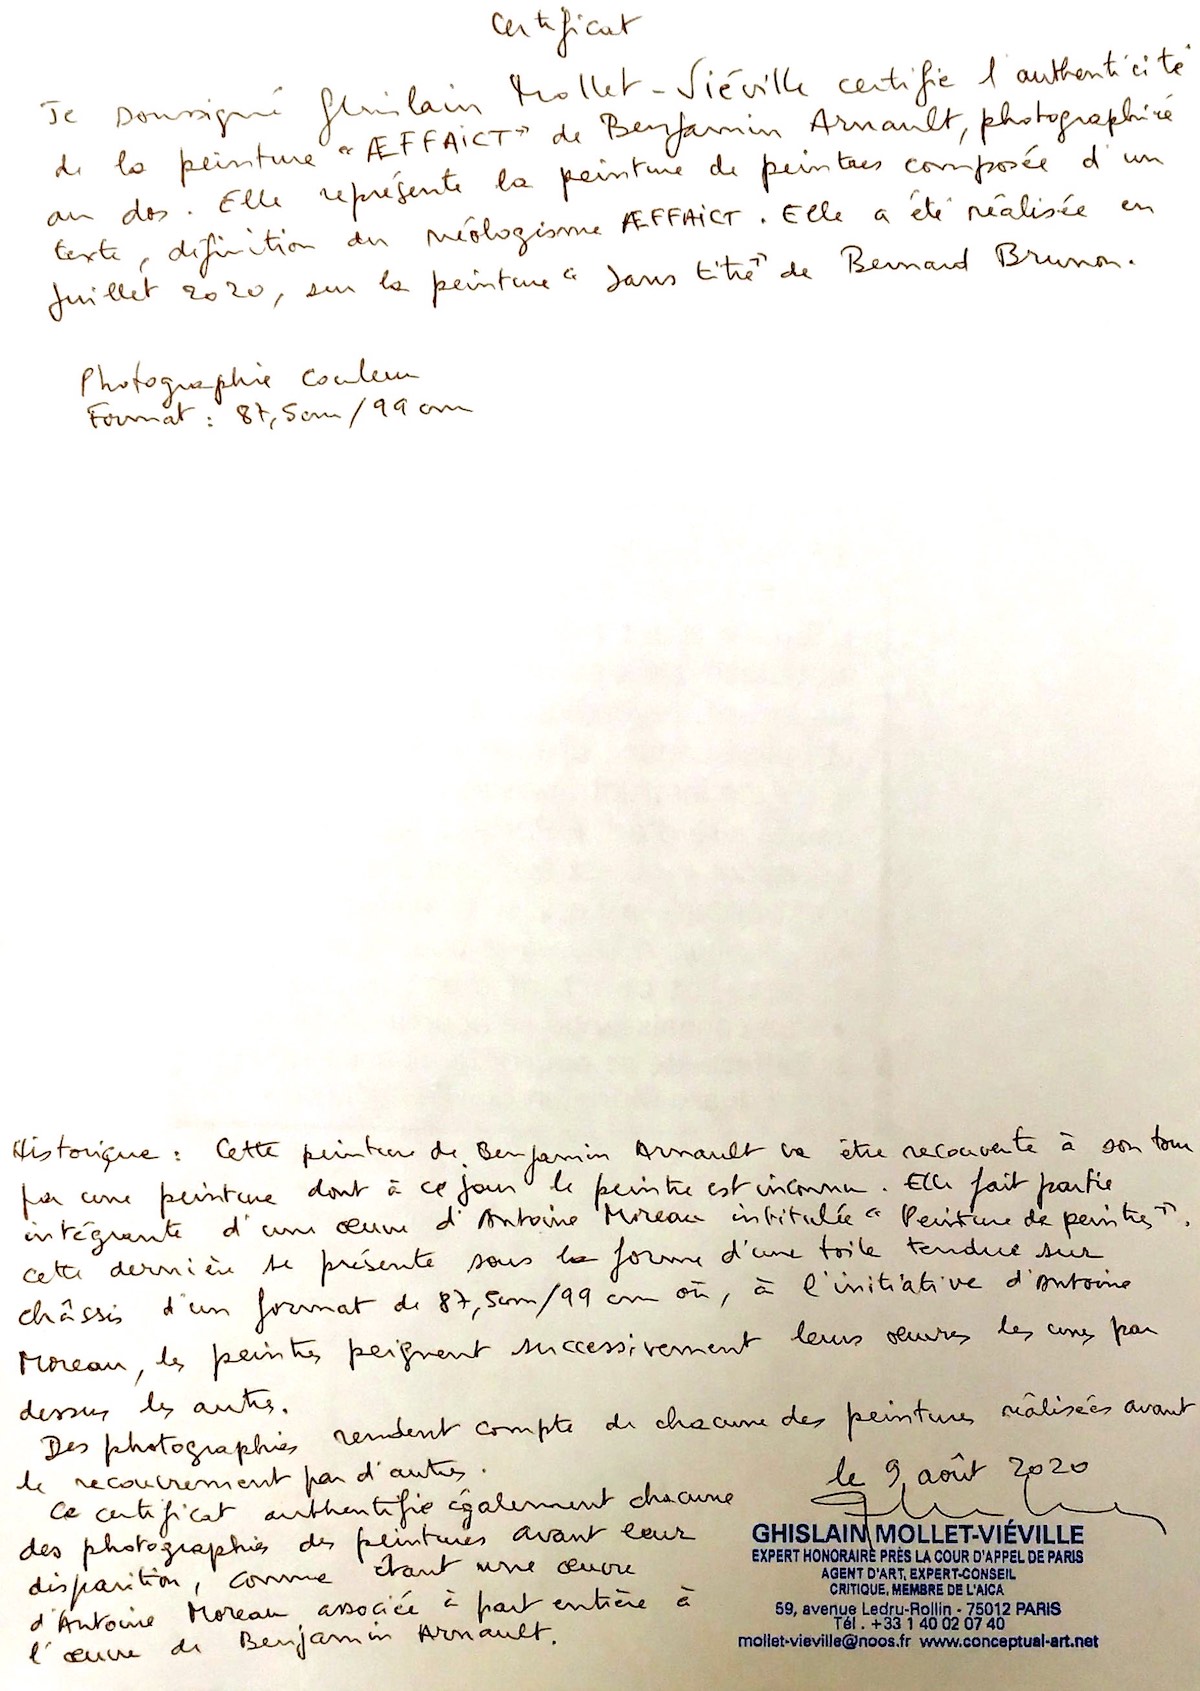 Certificat
Je soussigné Ghislain Mollet-Viéville certifie l'authenticité
de la peinture "ÆFFAiCT" de Benjamin Arnault, photographiée
au dos. Elle représente la peinture de peintres composée d'un
texte, définition du néologisme ÆFFAiCT. Elle a été réalisée en
Juillet 2020, sur la peinture "Sans titre" de Bernard Brunon.
Photographie couleur
Format : 87,5cm/99 cm
Historique : Cette peinture de Benjamin Arnault va être recouverte à son tour
par une peinture dont à ce jour le peintre est inconnu. Elle fait partie
intégrante d'une œuvre d'Antoine Moreau intitulée "Peinture de peintres".
Cette dernière se présente sous la forme d'une toile tendue sur
châssis d'un format de 87,5cm/99 cm où, à l'initiative d'Antoine
Moreau, les peintres peignent successivement leurs œuvres les unes par
dessus les autres.
Des photographies rendent compte de chacune des peintures réalisées avant
le recouvrement par d'autres.
Ce certificat authentifie également chacune
des photographies des peintures avant leur
disparition, comme étant une œuvre
d'Antoine Moreau associée à part entière à
l'œuvre de Benjamin Arnault.
le 9 août 2020
GHISLAIN MOLLET-VIÉVILLE
EXPERT HONORAIRE PRÈS LA COUR D'APPEL DE PARIS
AGENT D'ART, EXPERT-CONSEIL
CRITIQUE, MEMBRE DE L'AICA
59, avenue Ledru-Rollin - 75012 PARIS
Tél. +33 1 40 02 07 40
mollet-vieville@noos.fr www.conceptual-art.net